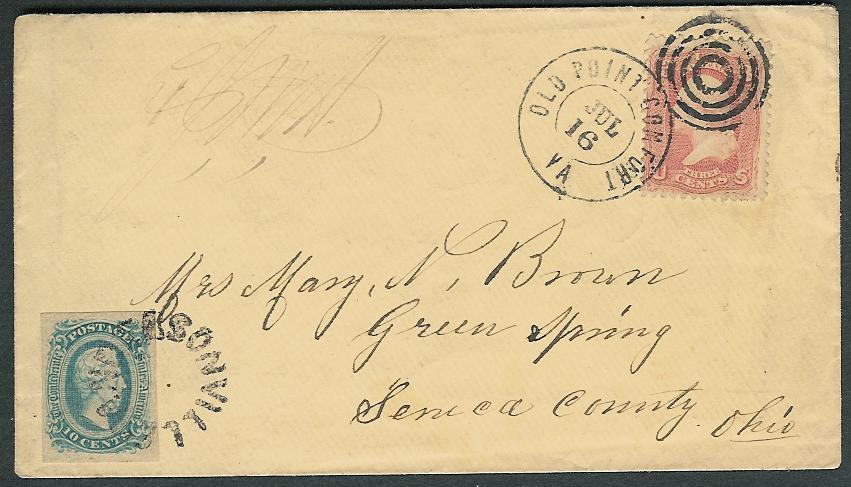 OLD POINT COMFORT
VA
JUL
16
U S
THREE
CENTS
Mrs Mary, N, Brown
Green Spring
Seneca County
Ohio
POSTAGE
The Confederate States of America
10 CENTS